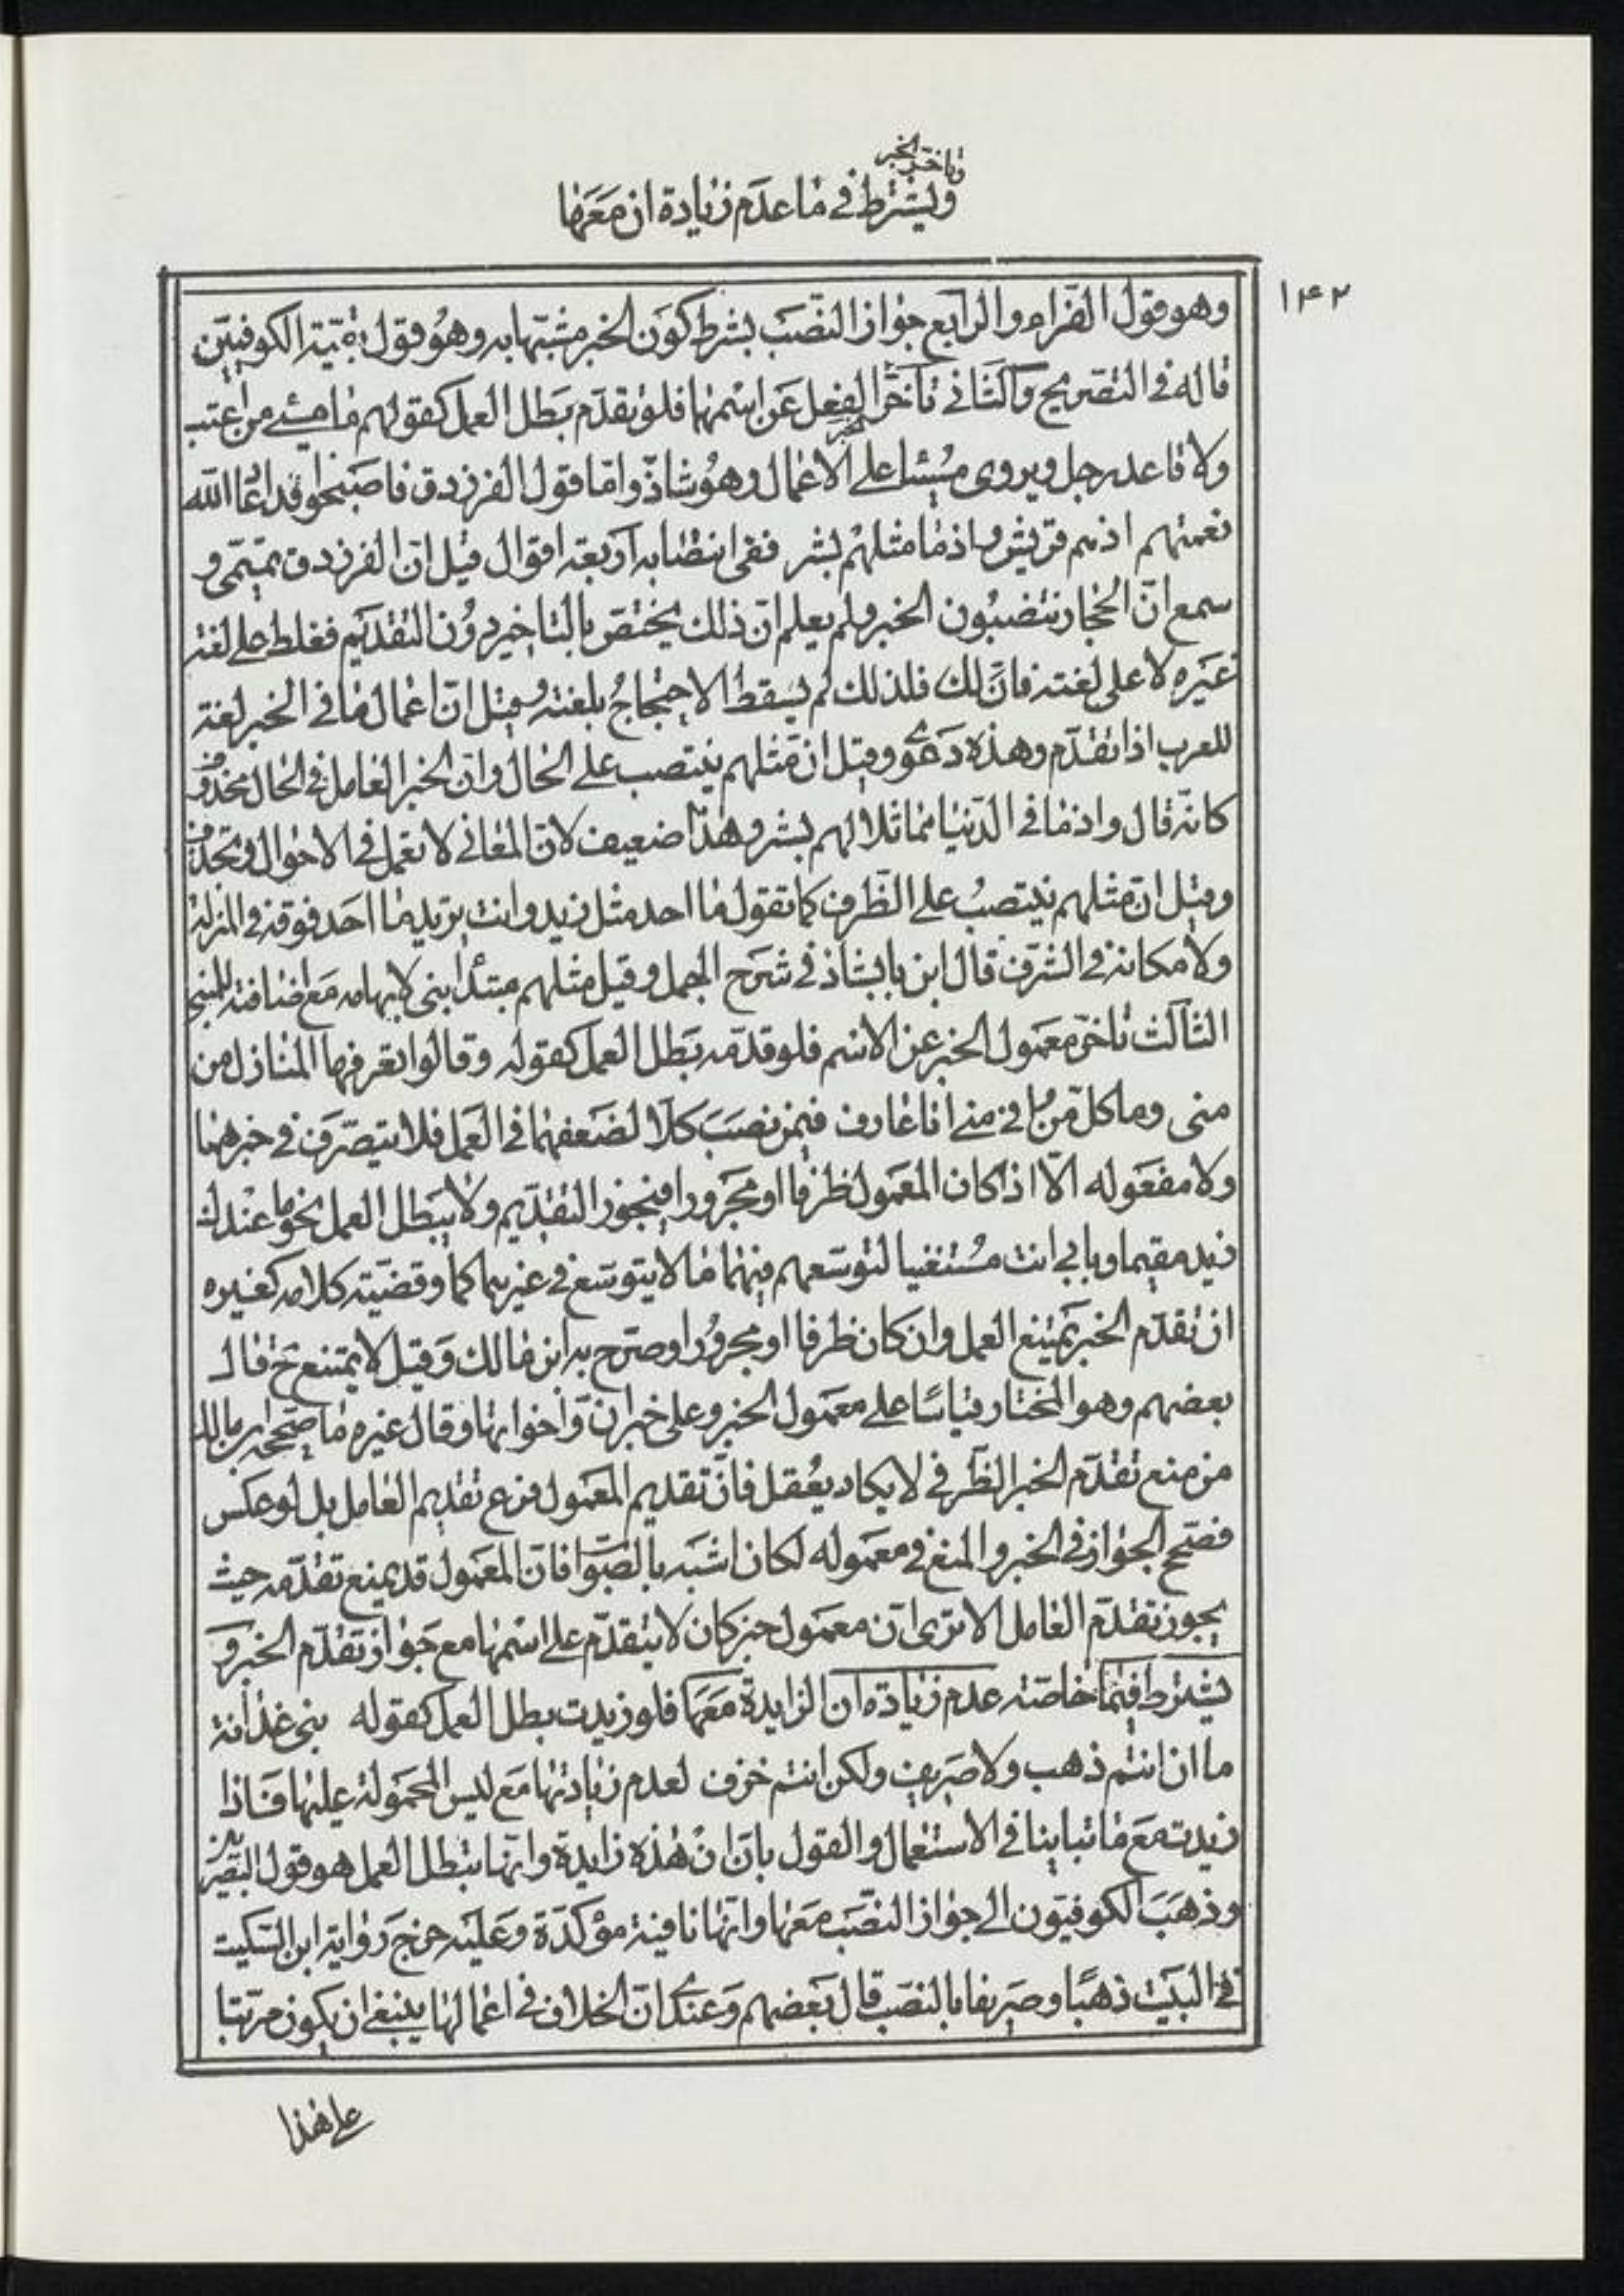 وتاخر الخبر
ويشترط في ما عدم زيادة ان معها
١٤٢
وهو قول الفراء والرابع جواز النصب بشرط كون الخبر مشبها به وهو قول بقية الكوفيين
قاله في التصريح والثاني تاخر الخبر عن اسمهما فلو تقدم بطل العمل كقولهم ما مسئ من اعتب
ولا قاعد رجل ويروى مسيئا على الاعمال وهو شاذ واما قول الفرزدق فاصبحوا قد اعاد الله
نعمتهم اذ هم قريش واذ ما مثلهم بشر ففي انتصابه اربعة اقوال قيل ان الفرزدق تميمي و
سمع ان الحجاز ينتصبون الخبر ولم يعلم ان ذلك يختص بالتاخير دون التقديم فغلط على لغة
غيره لا على لغته فان لك فلذلك لم يسقط الاحتجاج بلغته وقيل ان اعمال ما في الخبر لغة
للعرب اذا تقدم وهذه دعوى وقيل ان مثلهم ينتصب على الحال وان الخبر العامل في الحال محذوف
كانه قال واذ ما في الدنيا مماثلا لهم بشر وهذا ضعيف لان المعاني لا تعمل في الاحوال في تحذف
وقيل ان مثلهم ينتصب على الظرف كما تقول ما احد مثل زيد وانت تريد ما احد فوقه في المنزلة
ولا مكانه في الشرف قال ابن بابشاذ في شرح الجمل وقيل مثلهم مبتدا بنى لابهامه مع اضافته للمبني
الثالث تاخر معمول الخبر عن الاسم فلو قدمه بطل العمل كقوله وقالوا تعرفها المنازل من
منى وما كل من وافى منى انا عارف فيمن نصب كلا لضعفهما في العمل فلا يتصرف في خبرهما
ولا مفعوله الا اذا كان المعمول ظرفا او مجرورا فيجوز التقديم ولا يبطل العمل نحو ما عندك
زيد مقيما وما بي انت مستغنيا لتوسعهم فيهما ما لا يتوسع في غيرهما كما وقضية كلامه كغيره
ان تقدم الخبر يمنع العمل وان كان ظرفا او مجرورا وصرح به ابن مالك وقيل لا يمتنع ح قال
بعضهم وهو المختار قياسا على معمول الخبر وعلى خبر ان واخواتها وقال غيره ما صححه ابن مالك
من منع تقدم الخبر الظرفي لا يكاد يعقل فان تقديم المعمول فرع تقديم العامل بل لو عكس
فصحح الجواز في الخبر والمنع في معموله لكان اشبه بالصواب فان المعمول قد يمنع تقدمه حيث
يجوز تقدم العامل الا ترى ان معمول خبر كان لا يتقدم على اسمها مع جواز تقدم الخبر و
يشترط في ما خاصة عدم زيادة ان الزايدة معها فلو زيدت بطل العمل كقوله بنى غدانة
ما ان انتم ذهب ولا صريف ولكن انتم خزف لعدم زيادتها مع ليس المحمولة عليها فاذا
زيدت مع ما تباينا في الاستعمال والقول بان ان هذه زايدة وانها تبطل العمل هو قول البصريين
وذهب الكوفيون الى جواز النصب معها وانها نافية مؤكدة وعليه خرج رواية ابن السكيت
في البيت ذهبا وصريفا بالنصب قال بعضهم وعندى ان الخلاف في اعمالها ينبغي ان يكون مرتبا
على هذا